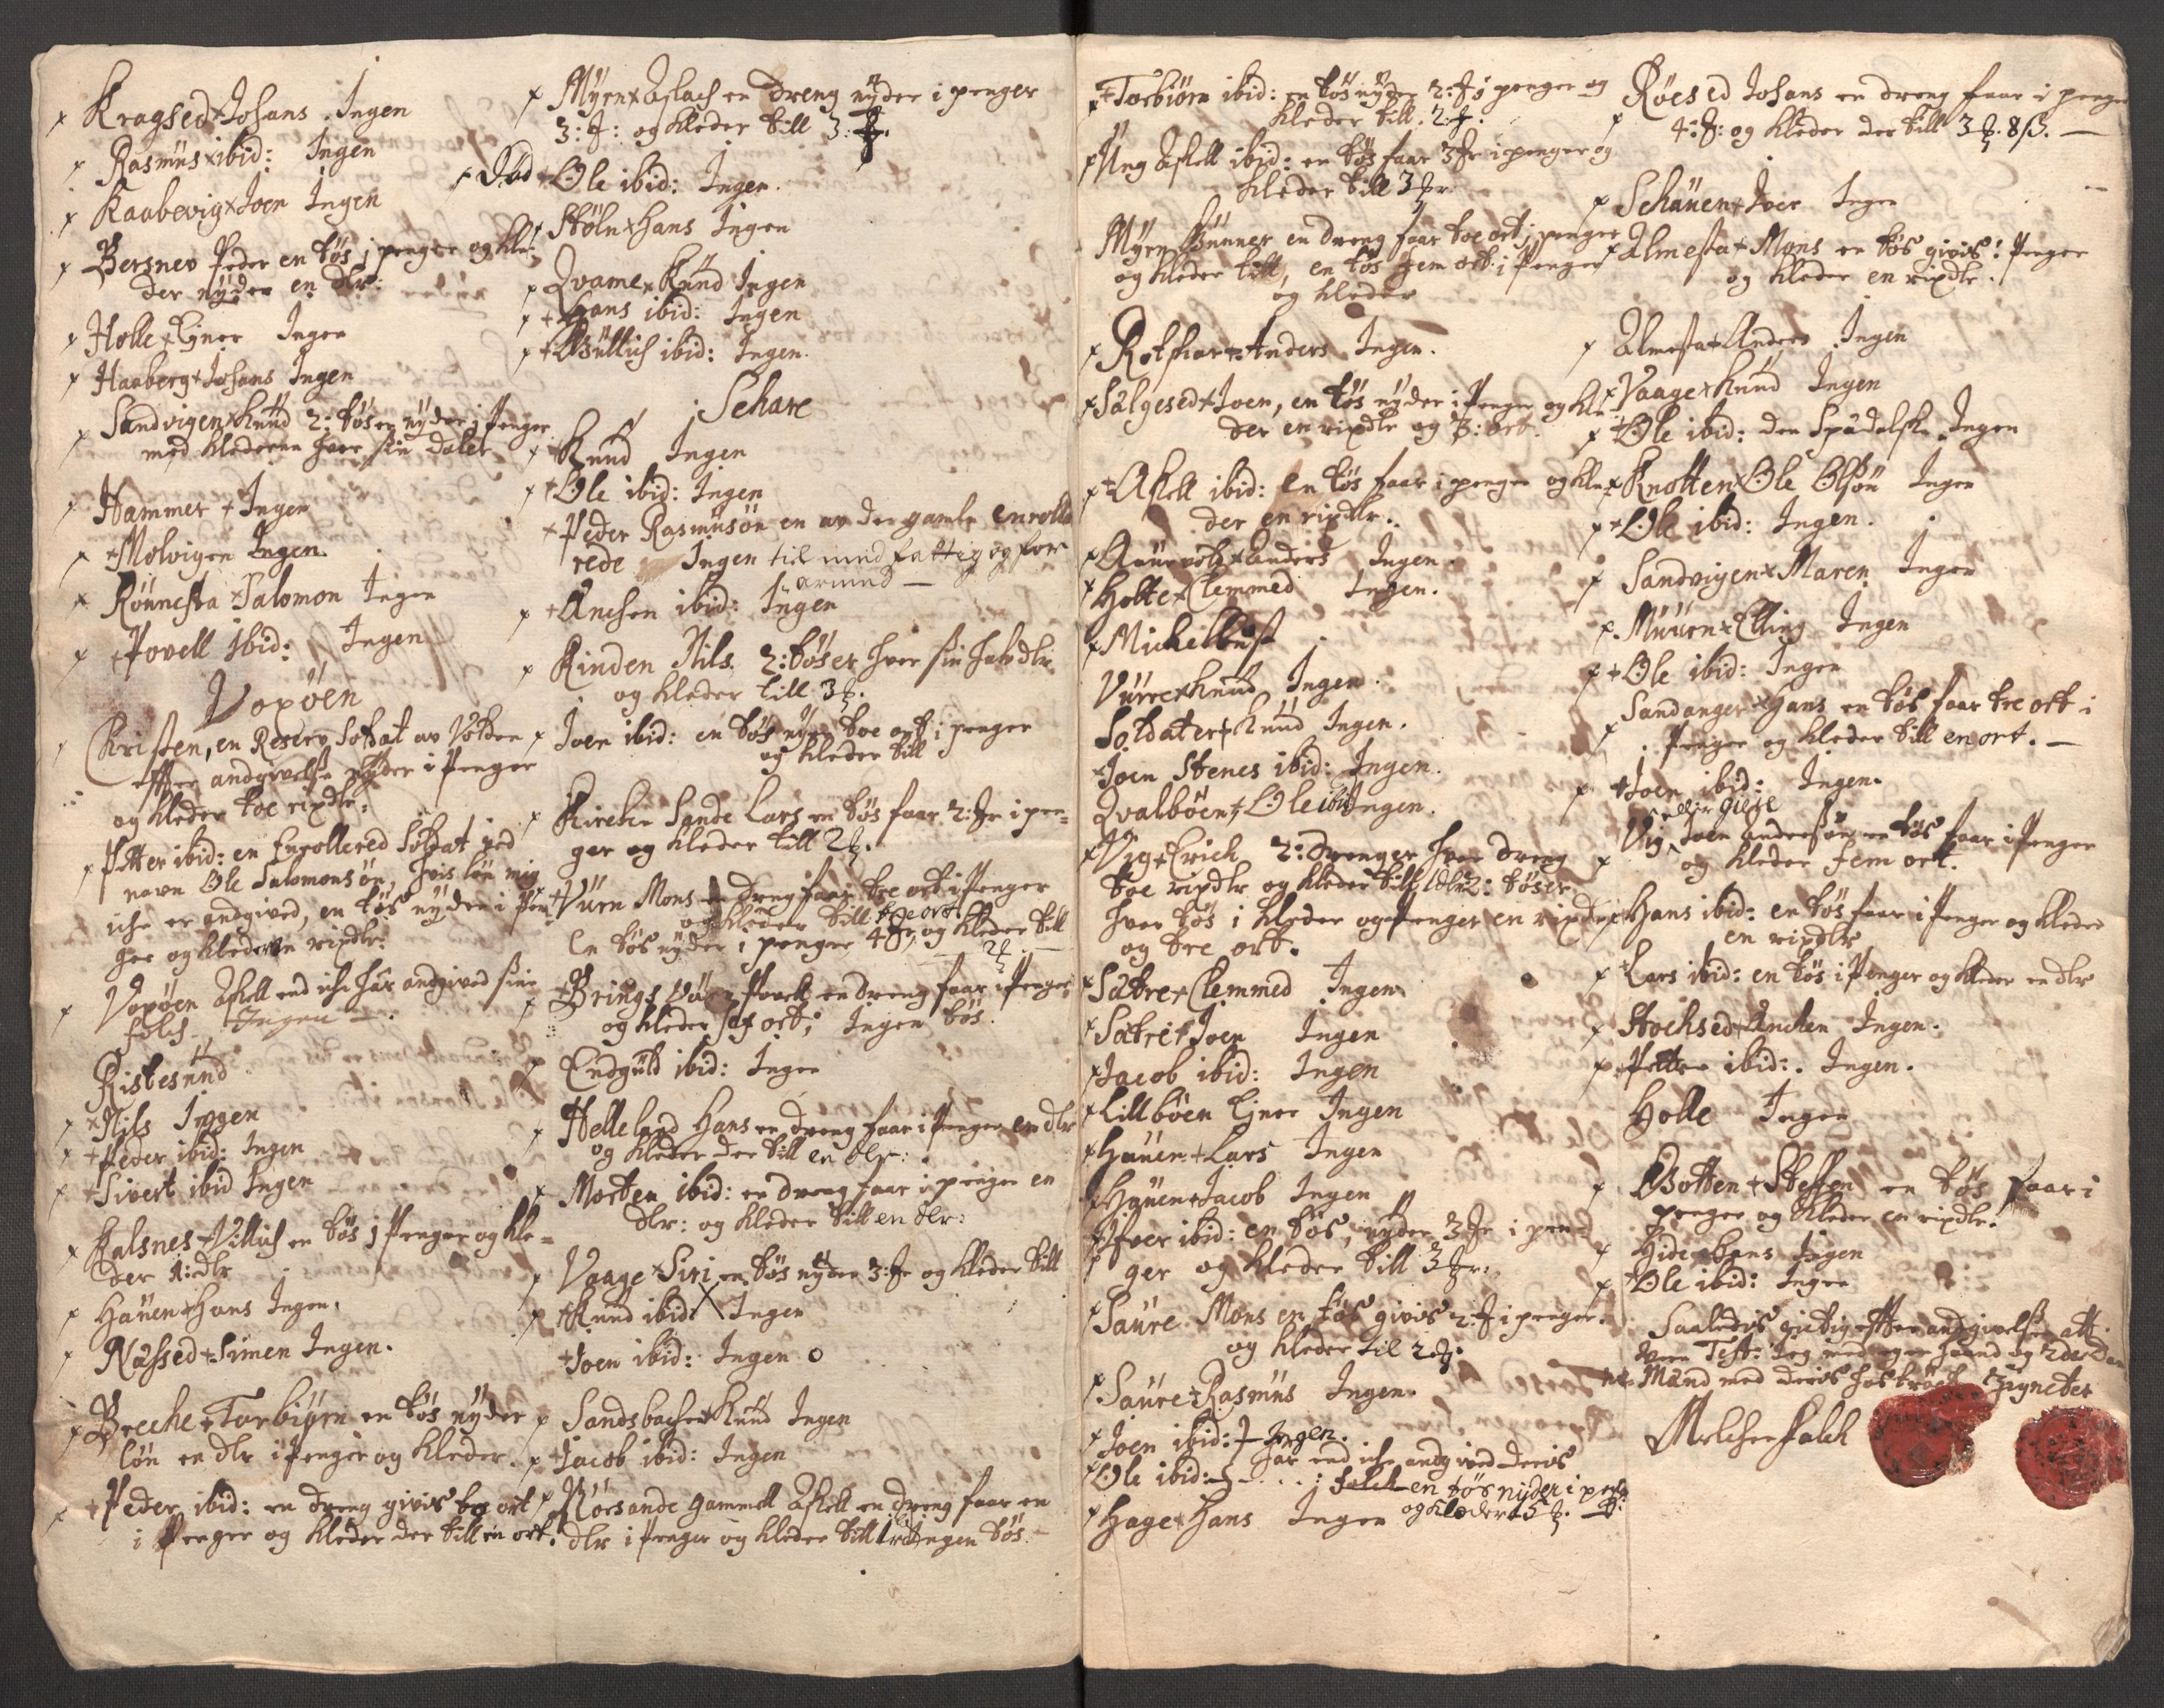 Kragsed Johans Ingen
Rasmus ibid: Ingen
Kaabevig Joen Ingen
Bersnev Peder en tøs j penger og kle-
der nyder en dlr:
Holle Ejner Ingen
Haaberg Johans Ingen
Sandvigen Knud 2: tøser nyder j Penger
med klederne hver sin daler
Hammer Ingen
Molvigen Ingen
Rønnesta Salomon Ingen
Povell ibid: Ingen
Voxøen
Christen, en Reserv Soldat av Volden
effter andgivelse nyder i Penger
og kleder toe rixdlr:
Petter ibid: en Enrollered Soldat ved
navn Ole Salomonsøn, hvis løn mig
iche er andgived, en tøs nyder i Pen-
ger og kleder en rixdlr:
Voxøen Askell end iche har andgived sine
folch Ingen
Ristesund
Nils Ingen
Peder ibid: Ingen
Sivert ibid Ingen
Kalsnes Villich en tøs j Penger og kle-
der 1: dlr
Hauen Hans Ingen.
Nassed Simen Ingen.
Breche Torbiørn en tøs nyder
løn en dlr i Penger og kleder.
Peder ibid: en dreng givis toe ort
i Penger og kleder der till en ort.
Myrn Aslach en dreng nyder i penger
3: : og kleder till 3:
Død Ole ibid: Ingen.
Støln Hans Ingen
Qvame Knud Ingen
Hans ibid: Ingen
Gullich ibid: Ingen.
Schare
Knud Ingen
Ole ibid: Ingen
Peder Rasmusøn en av de gamle enrolle
rede Ingen til med fattig og for
armed
Anchen ibid: Ingen
Rinden Nils 2: tøser hver sin halv dlr
og kleder till 3
Joen ibid: en tøs nyder toe ort i penger
og kleder till
Kirche Sande Lars en tøs faar 2: i pen-
ger og kleder till 2
Vurn Mons en dreng faar tre ort i Penger
og kleder till tre ort
En tøs nyder i penger 4 og kleder till
2
Brings Povell en dreng faar i Penge
og kleder sex ort; Ingen tøs.
Endguld ibid: Ingen
Helleland Hans en dreng faar i Penger en dlr
og kleder der till en dlr:
Morten ibid: en dreng faar i penger en
dlr: og kleder till en dlr:
Vaage Siri en tøs nyder 3: og kleder till
Knud ibid: Ingen
Joen ibid: Ingen
Sandsbache Knud Ingen
Jacob ibid: Ingen
Kørsande gammell Askell en dreng faar en
dlr i Penger og kleder till 1 Ingen tøs.
Torbiørn ibid: en tøs nyder 2: j penger og
kleder till. 2
Ung Askell ibid: en tøs faar 3 i penger og
kleder till 3
Myrn Gunner en dreng faar toe ort j penger
og kleder till, en tøs fem ort i Penger
og kleder
Rotshar Anders Ingen.
Salgesed Joen, en tøs nyder i Penger og kle-
der en rixdlr og 3: ort.
Askell ibid: en tøs faar i penger og kle-
der en rixdlr.
Anders Ingen
Holte Clemmed Ingen.
Michelbust
Vurre Knud Ingen.
Soldater Knud Ingen.
Joen Stenes ibid: Ingen.
Qvalbøen Ole ibid Ingen.
Vig Erich 2: drenger hver dreng
toe rixdlr og kleder till 1 dlr 2: tøser
hver tøs i kleder og Penger en rixdlr
og tre ort.
Satre Clemmed Ingen
Satre Joen Ingen
Jacob ibid: Ingen
Lillbøen Ejner Ingen
Hauen Lars Ingen
Hauen Jacob Ingen
Iver ibid: en tøs, nyder 3 i pen-
ger og kleder till 3
Saure Mons en tøs givis 2 i penger.
og kleder til 2
Saure Rasmus Ingen.
Joen ibid: Ingen.
har end iche andgived deris
Ole ibid: folch en tøs nyder i peng
og klæder 5
Hage Hans Ingen
Røesed Johans en dreng faar i penge
4: og kleder der till 3 8 ß.
Schauen Joer Ingen
Almesta Mons en tøs givis i Penger
og kleder en rixdlr.
Almesta Anders Ingen
Vaage Knud Ingen
Ole ibid: den Ingen
Knotten Ole Olsøn Ingen
Ole ibid: Ingen.
Sandvigen Maren Ingen
Muurn Elling Ingen
Ole ibid: Ingen
Sandanger Hans en tøs faar tre ort i
Penger og kleder till en ort.
Joen ibid: Ingen.
eller Gilse
Vig Joen Andersøn en tøs faar i Penger
og kleder fem ort.
Hans ibid: en tøs faar i Penger og kleder
en rixdlr
Lars ibid: en tøs i Penger og kleder en dlr
Stochsed Anchen Ingen.
Petter ibid: Ingen.
Holle Ingen
Botten Steffen en tøs faar i
penger og kleder en rixdlr.
Hide Hans Ingen
Ole ibid: Ingen
Saaledis rigtig effter andgivelse att
vere Test: Jeg med egen haand og
Mænd med deris hos trøcht Zigneter
Melcher Falch